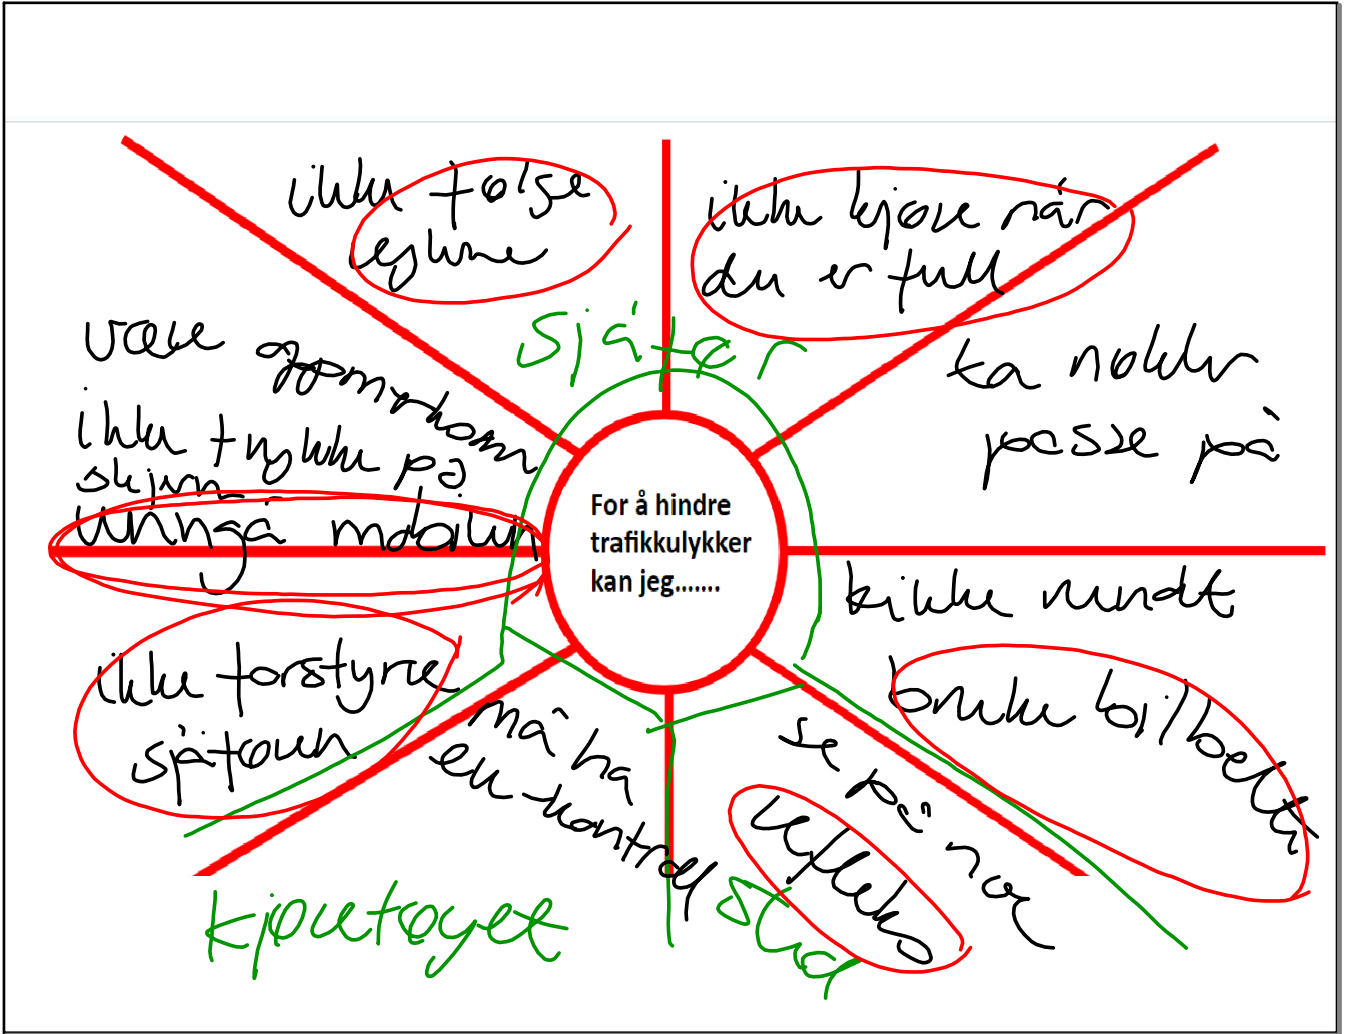 ikke følge
reglene
ikke kjøre når
du er full
sjåfør
være oppmerksom
ikke trykke på
skjerm
unngå mobilen
ta nøkler
passe på
For å hindre
trafikkulykker
kan jeg.......
kikke rundt
bruke bilbelte
ikke forstyrre
sjåføren
må ha
eu-kontroll
se på når
refleks
kjøretøyet